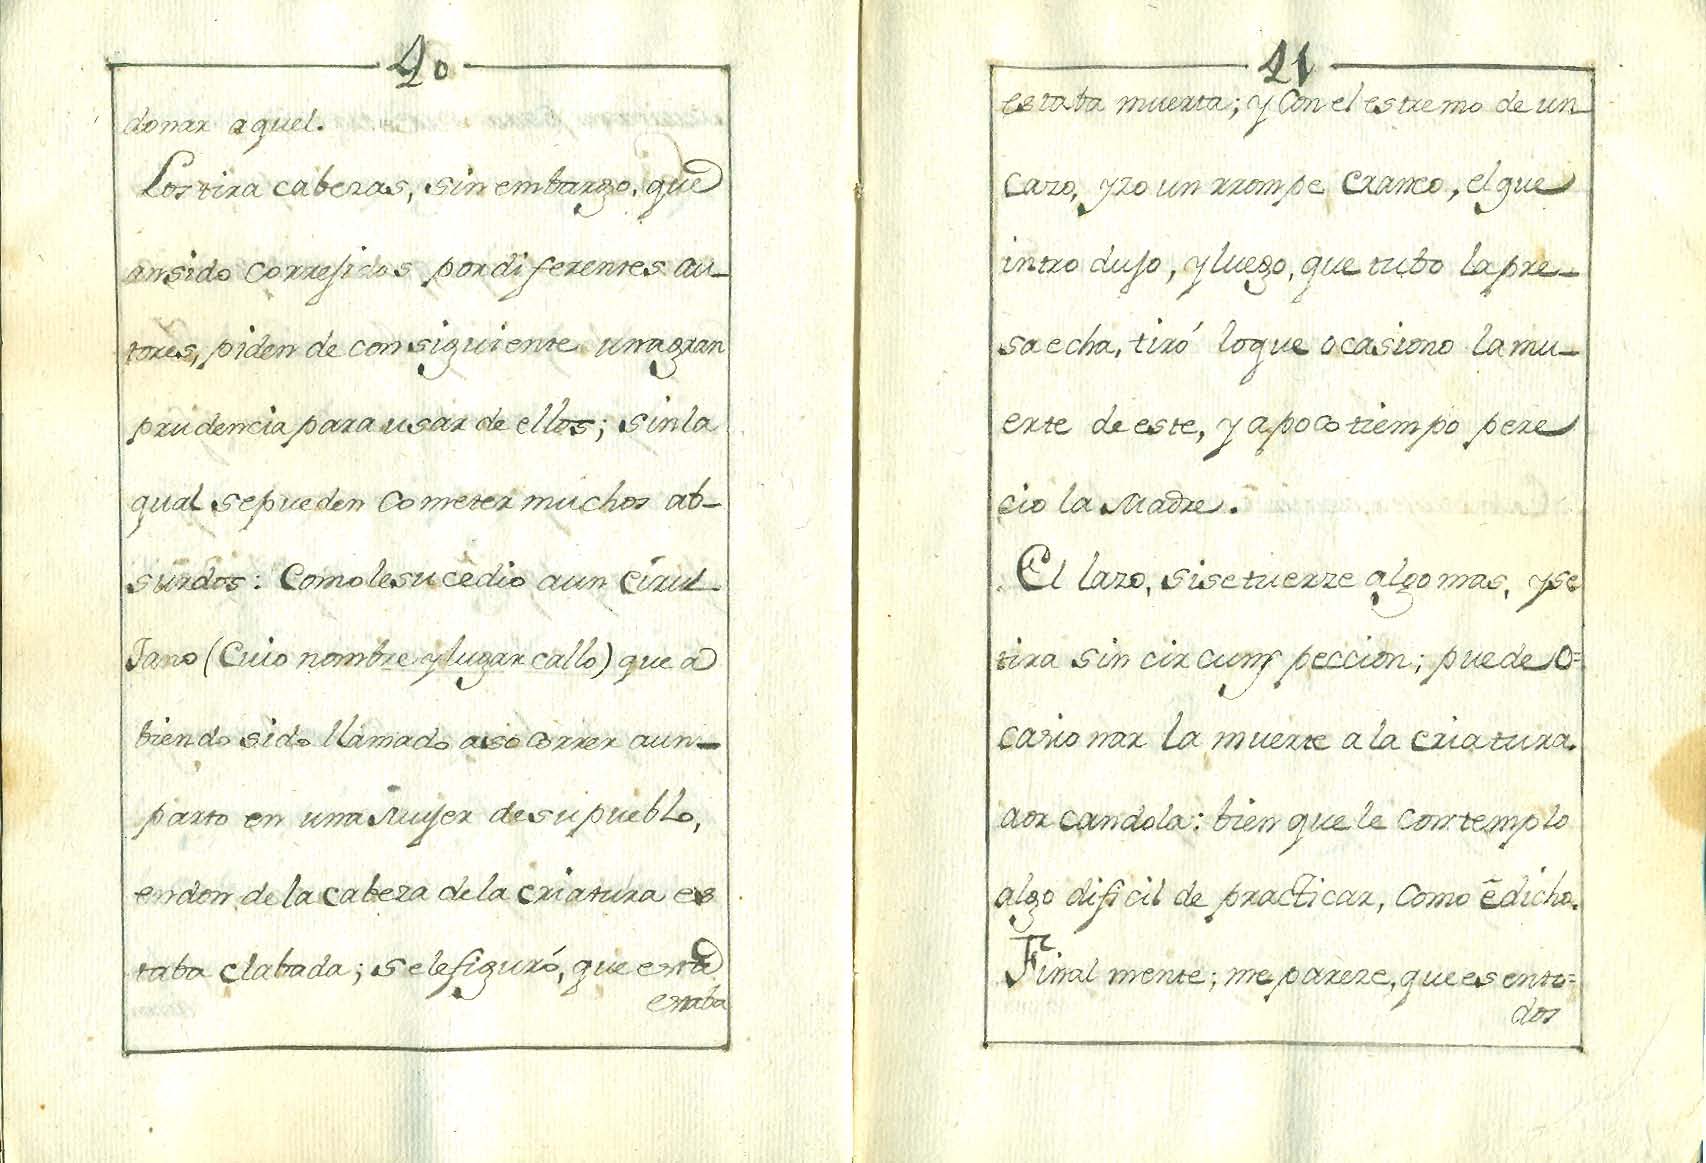 40
donar aquel.
Los tira cabezas, sin embargo, que
an sido corregidos por diferentes au-
tores, piden de consiguiente una gran
prudencia para usar de ellos; sin la
qual se pueden cometer muchos ab-
surdos: Como le sucedio a un Cirul
Jano (Cuio nombre y lugar callo) que a
biendo sido llamado a socorrer a un-
parto en una Muger de su pueblo,
en don de la cabeza de la criatura es
taba clabada; se le figuró, que esta
estaba
41
estaba muerta; y Con el estremo de un
cazo, yzo un rrompe Craneo, el que
introdujo, y luego, que tubo la pre-
sa echa, tiró lo que ocasiono la mu-
erte de este, y a poco tiempo pere
cio la Madre.
El lazo, si se tuerze algo mas, y se
tira sin circunspeccion; puede o=
casionar la muerte a la criatura.
aorcandola: bien que le contemplo
algo dificil de practicar, como é dicho.
Final mente; me pareze, que es en to=
dos